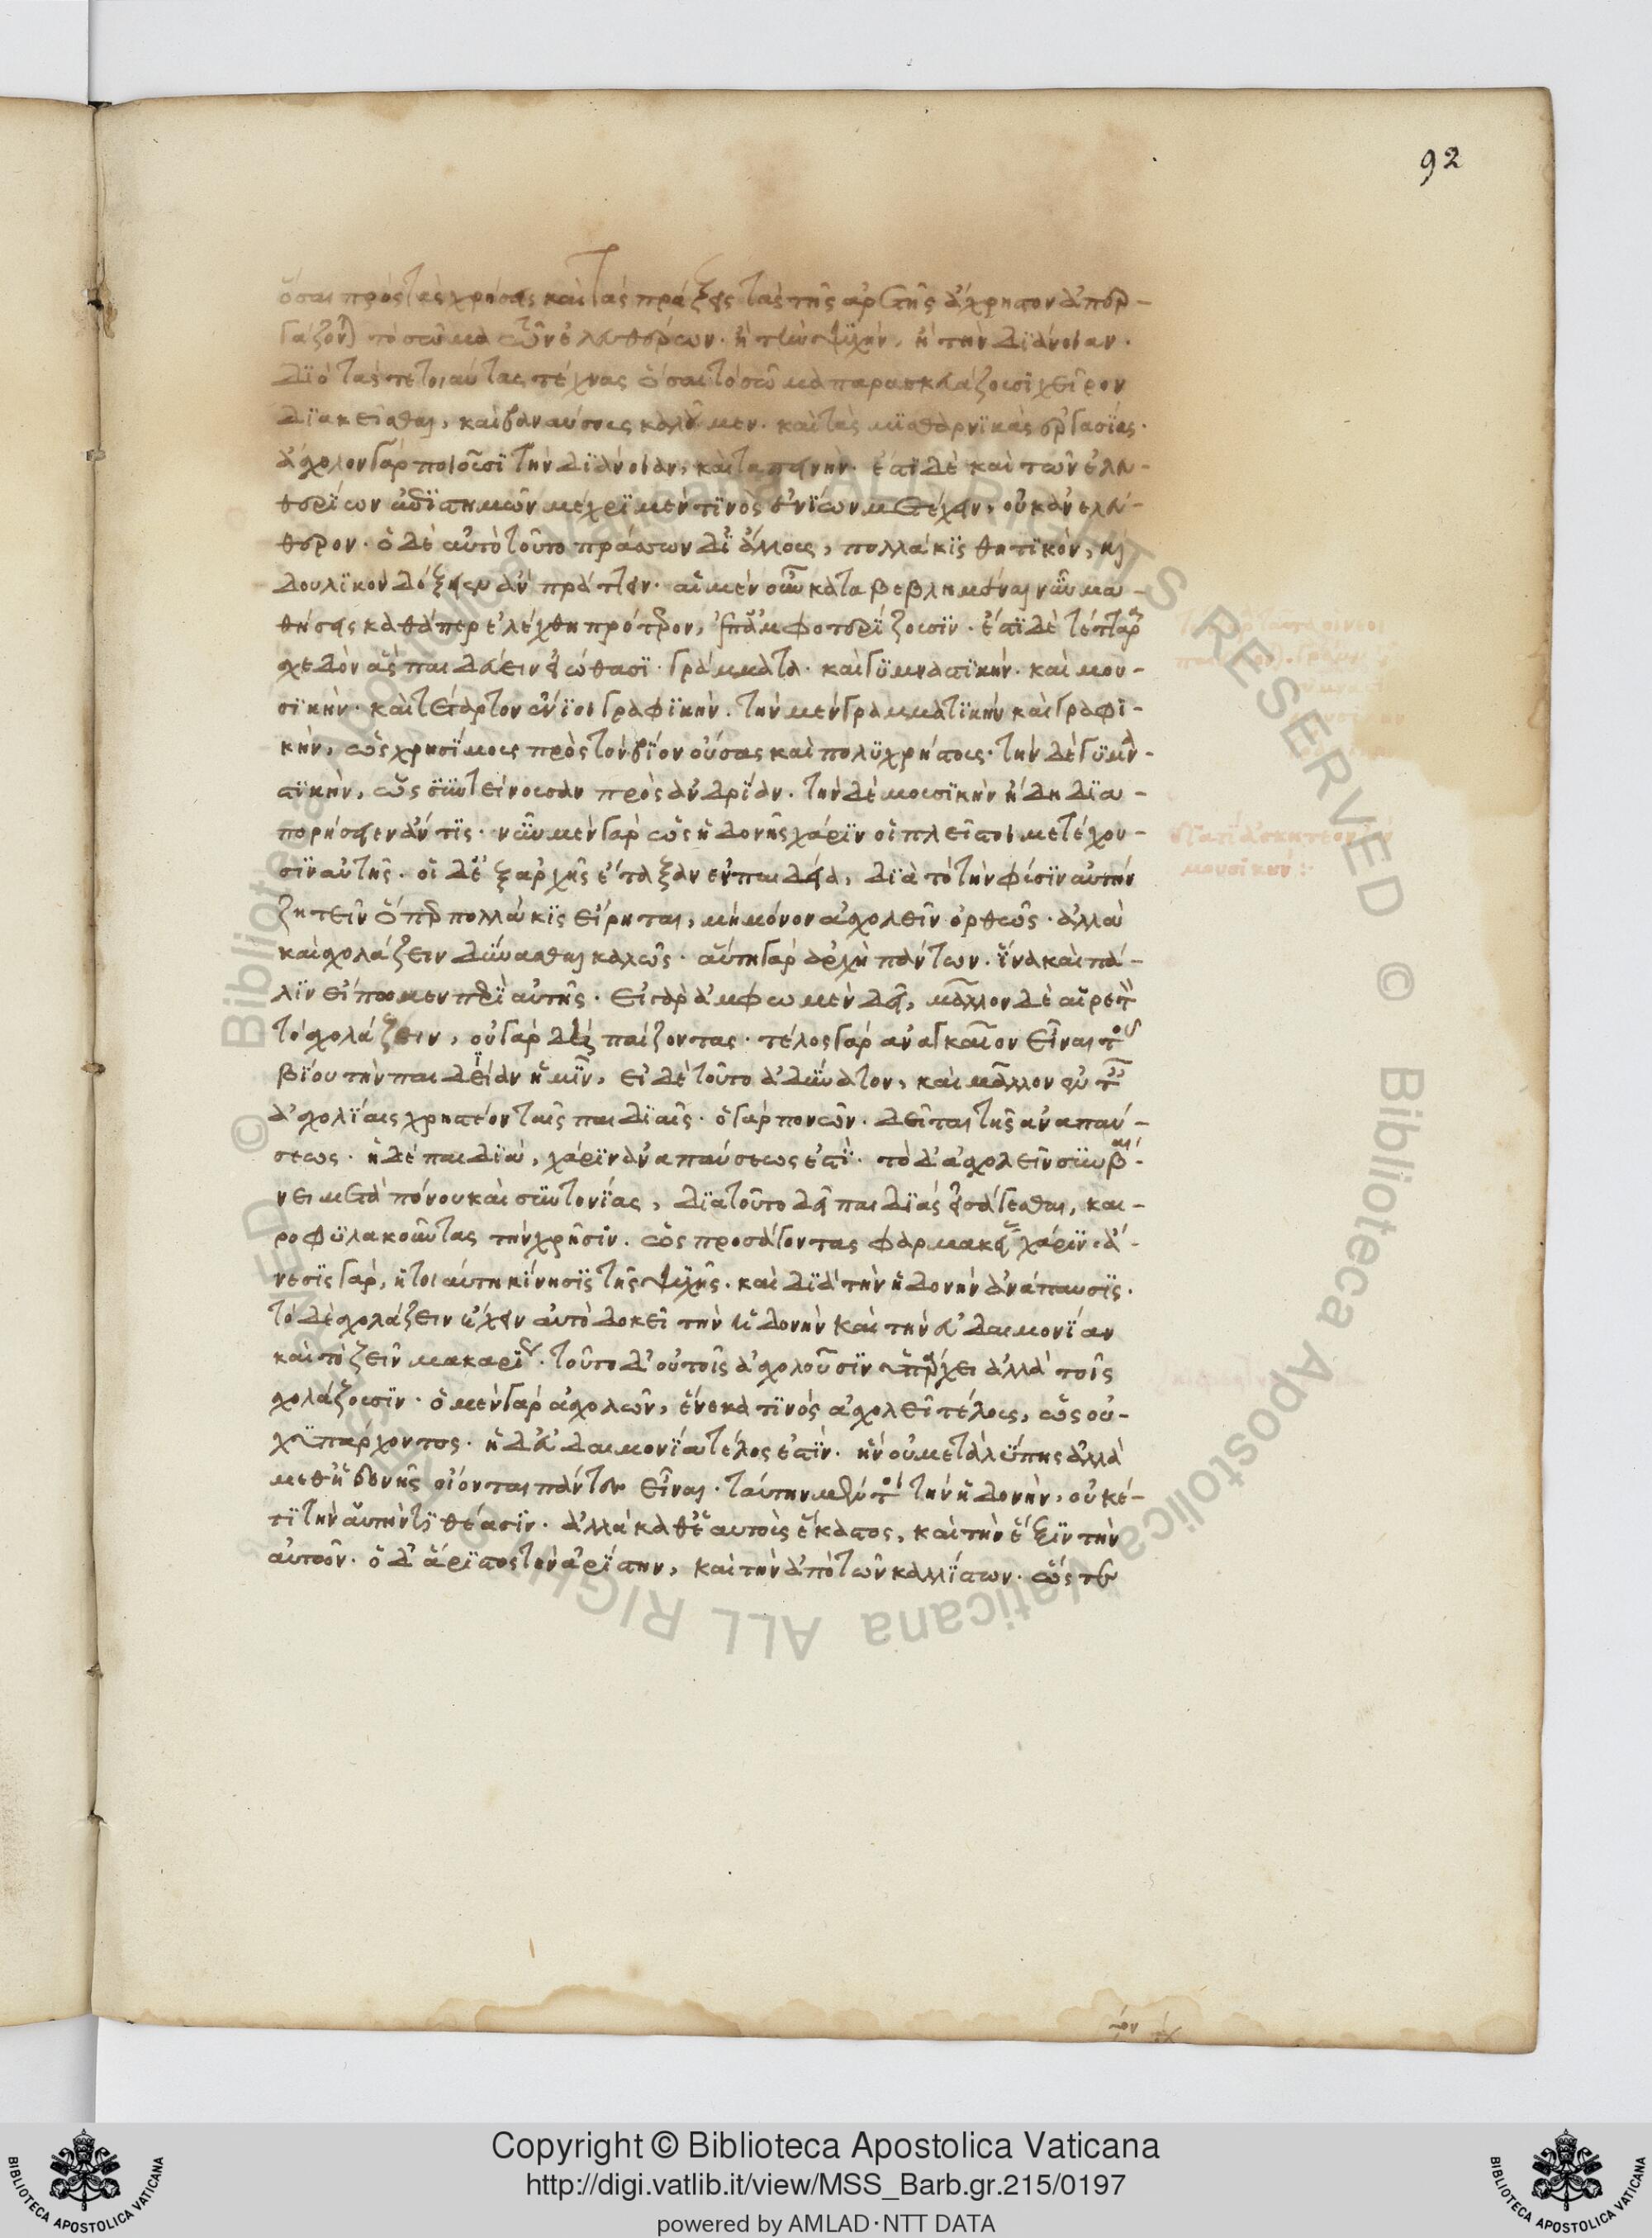 92
ὅσαι πρὸς τὰς χρήσεις καὶ τὰς πράξεις τὰς τῆς ἀρετῆς ἄχρηστον ἀπερ-
γάζονται τὸ σῶμα τῶν ἐλευθέρων. ἢ τὴν ψυχὴν, ἢ τὴν διάνοιαν.
διὸ τάς τε τοιαύτας τέχνας ὅσαι τὸ σῶμα παρασκευάζουσι χεῖρον
διακεῖσθαι, καὶ βαναύσους καλοῦμεν. καὶ τὰς μισθαρνικὰς ἐργασίας.
ἄσχολον γὰρ ποιοῦσι τὴν διάνοιαν, καὶ ταπεινήν. ἔστι δὲ καὶ τῶν ἐλευ-
θερίων ἐπιστημῶν μέχρι μέν τινος ἐνίων μετέχειν, οὐκ ἀνελεύ-
θερον. ὁ δὲ αὐτὸ τοῦτο πράττων δι' ἄλλους, πολλάκις θητικὸν, καὶ
δουλικὸν δόξειεν ἂν πράττειν. αἱ μὲν οὖν καταβεβλημέναι νῦν μα-
θήσεις καθάπερ ἐλέχθη πρότερον, ἐπαμφοτερίζουσιν. ἔστι δὲ τέτταρα
σχεδὸν ἃ παιδεύειν εἰώθασι. γράμματα. καὶ γυμναστικήν. καὶ μου-
σικήν. καὶ τέταρτον ἔνιοι γραφικήν. τὴν μὲν γραμματικὴν καὶ γραφι-
κὴν, ὡς χρησίμους πρὸς τὸν βίον οὔσας καὶ πολυχρήστους. τὴν δὲ γυμνα-
στικὴν, ὡς συντείνουσαν πρὸς ἀνδρίαν. τὴν δὲ μουσικὴν ἤδη δια-
πορήσειεν ἄν τις. νῦν μὲν γὰρ ὡς ἡδονῆς χάριν οἱ πλεῖστοι μετέχου-
σιν αὐτῆς. οἱ δ' ἐξ ἀρχῆς ἔταξαν ἐν παιδείᾳ, διὰ τὸ τὴν φύσιν αὐτὴν
ζητεῖν ὅπερ πολλάκις εἴρηται, μὴ μόνον ἀσχολεῖν ὀρθῶς. ἀλλὰ
καὶ σχολάζειν δύνασθαι καλῶς. αὕτη γὰρ ἀρχὴ πάντων. ἵνα καὶ πά-
λιν εἴπωμεν περὶ αὐτῆς. εἰ γὰρ ἄμφω μὲν δεῖ, μᾶλλον δὲ αἱρετὸν
τὸ σχολάζειν, οὐ γὰρ δὴ παίζοντας. τέλος γὰρ ἀναγκαῖον εἶναι τοῦ
βίου τὴν παιδείαν ἡμῖν, εἰ δὲ τοῦτο ἀδύνατον, καὶ μᾶλλον ἐν ταῖς
ἀσχολίαις χρηστέον ταῖς παιδιαῖς. ὁ γὰρ πονῶν. δεῖται τῆς ἀναπαύ-
σεως. ἡ δὲ παιδιὰ, χάριν ἀναπαύσεώς ἐστι. τὸ δ' ἀσχολεῖν συμβαί-
νει μετὰ πόνου καὶ συντονίας, διὰ τοῦτο δεῖ παιδιὰς εἰσάγεσθαι, και-
ροφυλακοῦντας τὴν χρῆσιν. ὡς προσάγοντας φαρμακείας χάριν. ἄ-
νεσις γὰρ, ἡ τοιαύτη κίνησις τῆς ψυχῆς. καὶ διὰ τὴν ἡδονὴν ἀνάπαυσις.
τὸ δὲ σχολάζειν ἔχειν αὐτὸ δοκεῖ τὴν ἡδονὴν καὶ τὴν εὐδαιμονίαν
καὶ τὸ ζεῖν μακαρίως. τοῦτο δ' οὐ τοῖς ἀσχολοῦσιν ὑπάρχει ἀλλὰ τοῖς
σχολάζουσιν. ὁ μὲν γὰρ ἀσχολῶν, ἕνεκά τινος ἀσχολεῖ τέλους, ὡς οὐ-
χ ὑπάρχοντος. ἡ δ' εὐδαιμονία τέλος ἐστὶν. ἣν οὐ μετὰ λύπης ἀλλὰ
μεθ' ἡδονῆς οἴονται πάντες εἶναι. ταύτην μέντοι τὴν ἡδονὴν, οὐκέ-
τι τὴν αὐτὴν τιθέασιν. ἀλλὰ καθ' ἑαυτοὺς ἕκαστος, καὶ τὴν ἕξιν τὴν
αὐτῶν. ὁ δ' ἄριστος τὴν ἀρίστην, καὶ τὴν ἀπὸ τῶν καλλίστων. ὥστε
μουσικήν:
Copyright © Biblioteca Apostolica Vaticana
http://digi.vatlib.it/view/MSS_Barb.gr.215/0197
powered by AMLAD·NTT DATA